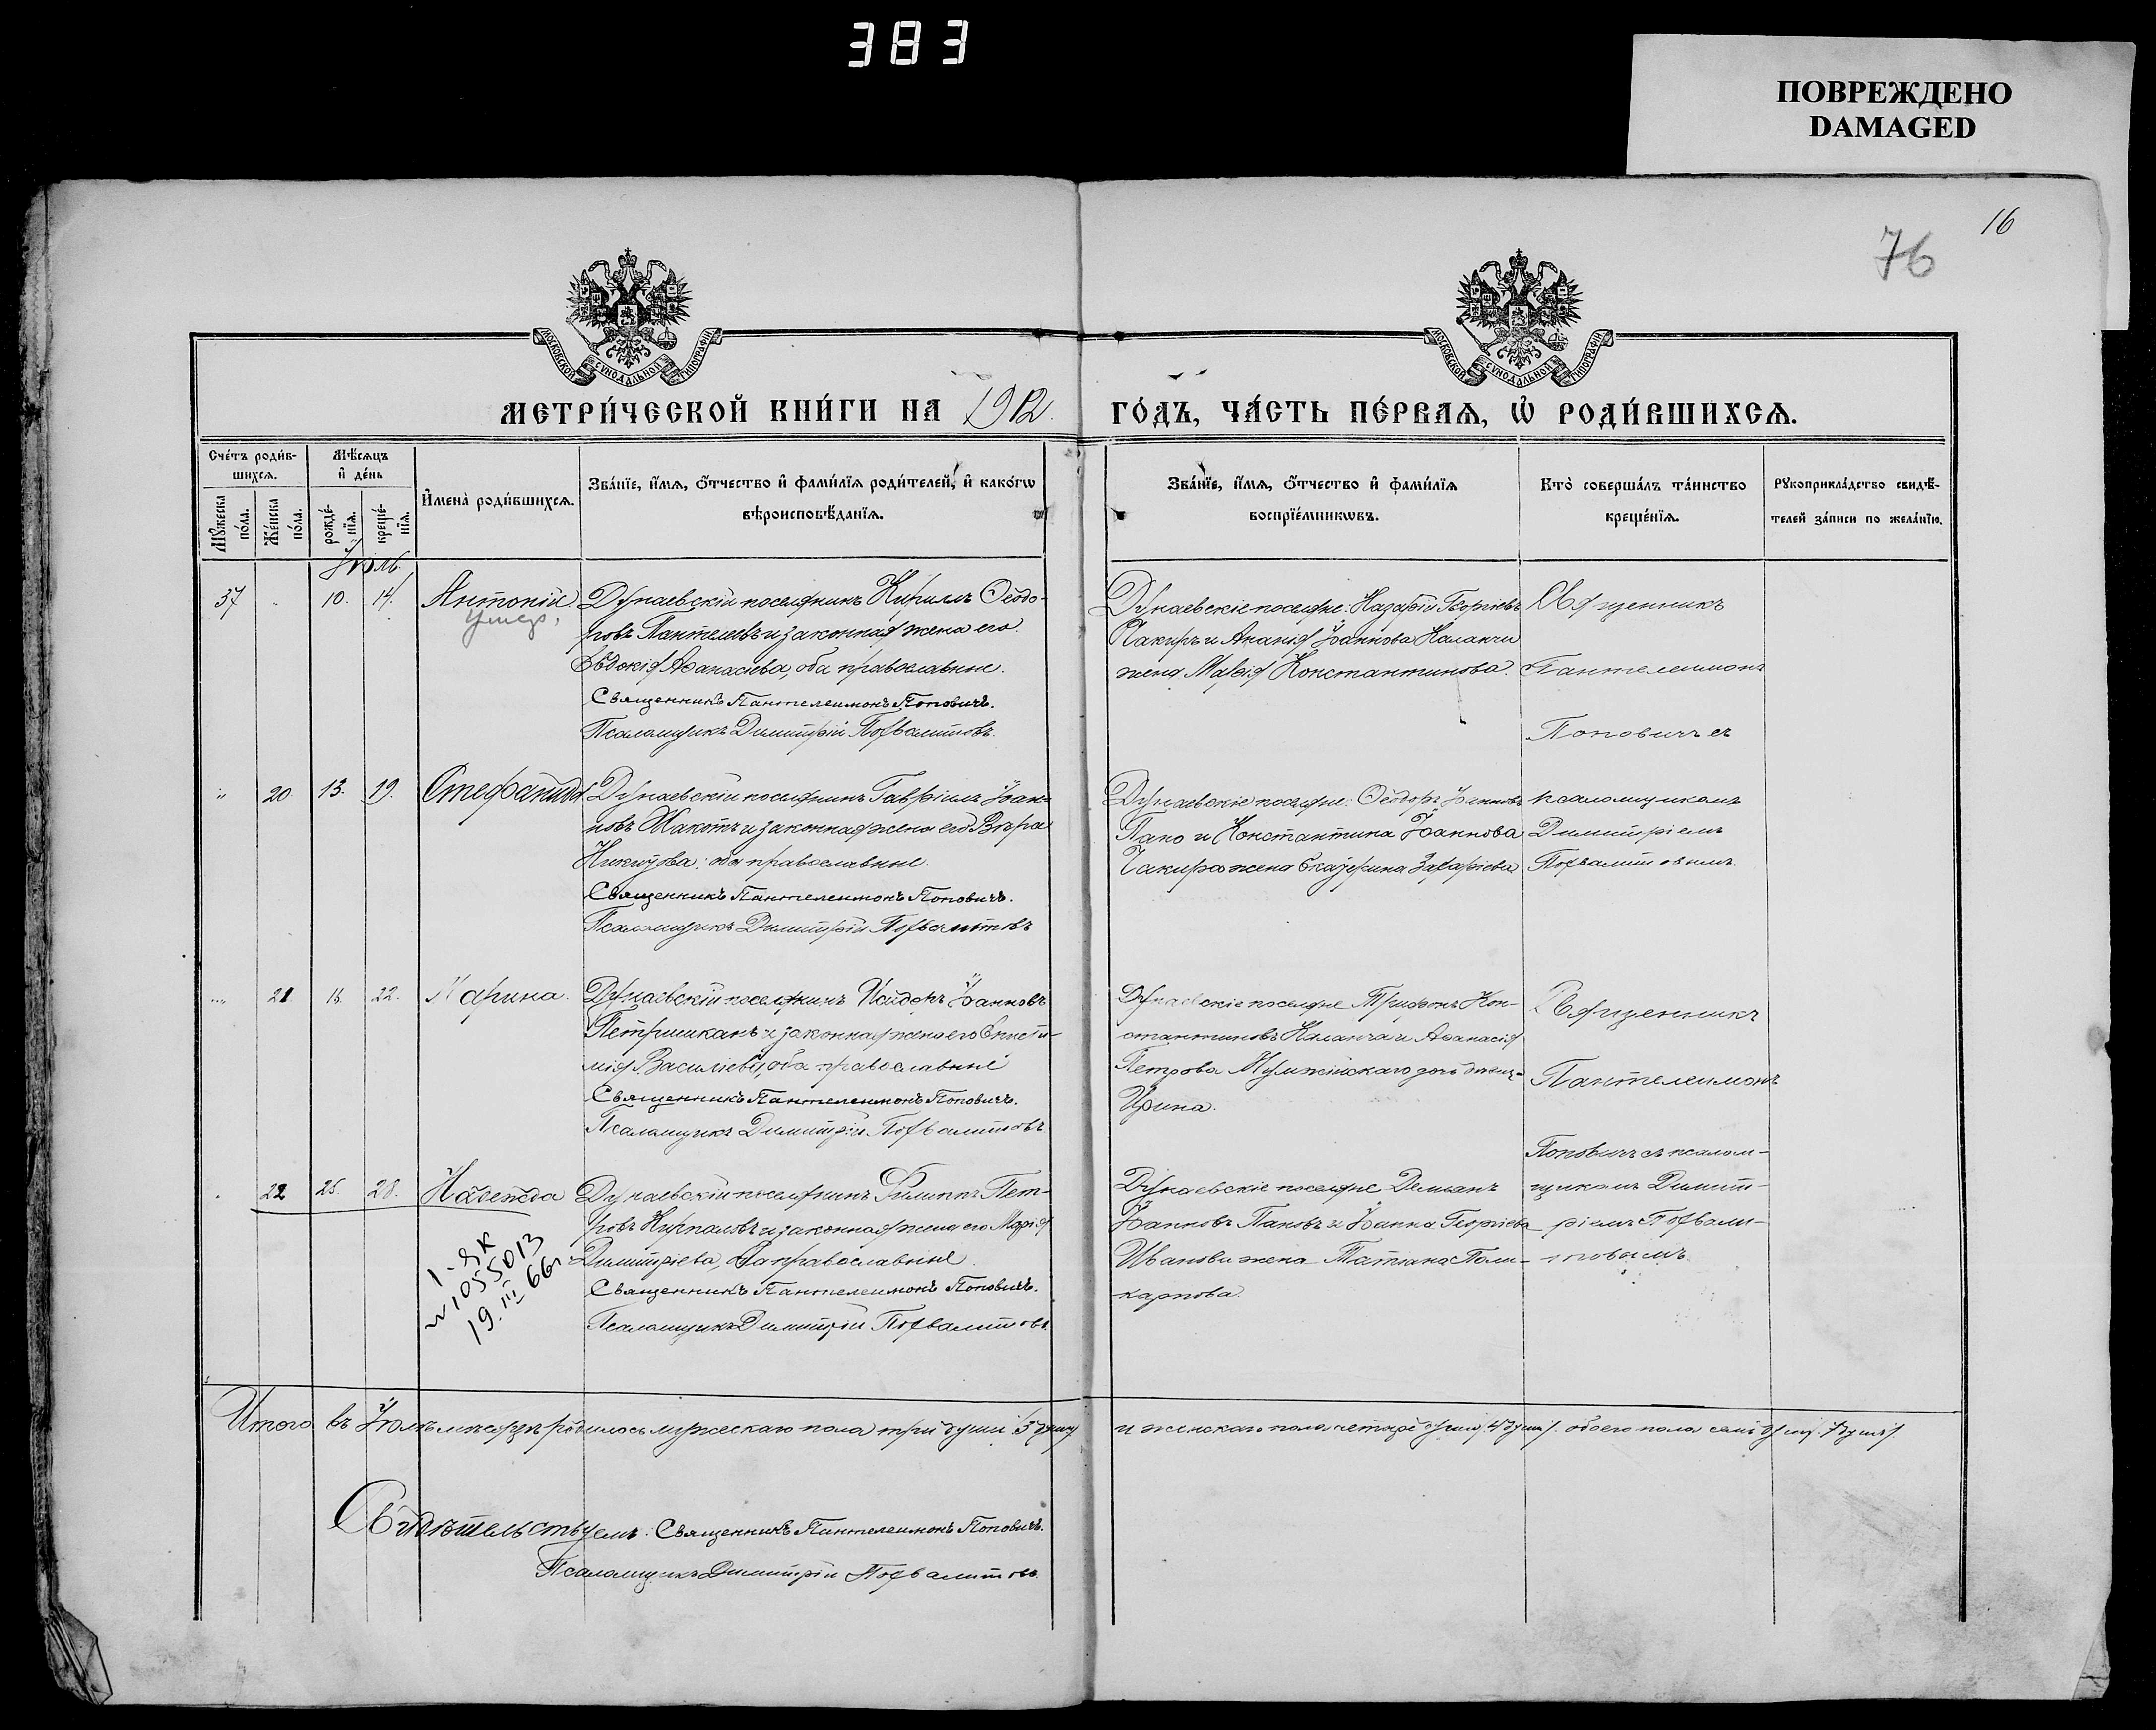 383
ПОВРЕЖДЕНО
DAMAGED
16
76
МОСКОВСКОЙ СѴНОДАЛЬНОЙ ТИПОГРАФІИ
МОСКОВСКОЙ СѴНОДАЛЬНОЙ ТИПОГРАФІИ
МЕТРИ́ЧЕСКОЙ КНИ́ГИ НА 1912. ГО́ДЪ, ЧА́СТЬ ПЕ́РВАѦ, Ѽ РОДИ́ВШИХСѦ.
Сче́тъ роди́в-
шихсѧ.
Мѣ́сѧцъ
и҆ де́нь
Мꙋ́жеска по́ла.
Же́нска по́ла.
рожде́-нїѧ.
креще́-нїѧ.
И҆мена̀ роди́вшихсѧ.
Зва́нїе, и҆́мѧ, ѻ҆́тчество и҆ фами́лїѧ роди́телей, и҆ како́гѡ
вѣроисповѣ́данїѧ.
Зва́нїе, и҆́мѧ, ѻ҆́тчество и҆ фами́лїѧ
воспрїе́мникѡвъ.
Кто̀ соверша́лъ та́инство
креще́нїѧ.
Рꙋкоприкла́дство свидѣ́-
телей за́писи по жела́нїю.
Іюль.
37 " 10. 14. Антоній
умер.
Дунаевскій поселянинъ Кириллъ Ѳеодо-
ровъ Пантелевъ и законная жена его
Евдокія Аѳанасіева, оба православные.
Священникъ Пантелеимонъ Поповичъ.
Псаломщикъ Димитрій Похвалитовъ.
Дунаевскіе поселяне: Назарій Георгіевъ
Чакиръ и Ананія Іоаннова Каланчи
жена Марія Константинова.
Священникъ
Пантелеимонъ
Поповичъ съ
" 20. 13. 19. Стефанида
Дунаевскій поселянинъ Гавріилъ Іоан-
новъ и законная жена его Вѣра
Никитова: оба православные.
Священникъ Пантелеимонъ Поповичъ.
Псаломщикъ Димитрій Похвалитовъ
Дунаевскіе поселяне: Ѳеодоръ Іоанновъ
и Константина Іоаннова
Чакира жена Екатерина Захаріева
псаломщикомъ
Димитріемъ
Похвалитовымъ.
" 21 18. 22. Марина.
Дунаевскій поселянинъ Исидоръ Іоанновъ
Петришканъ и законная жена его Еписти-
мія Василіева, оба православные
Священникъ Пантелеимонъ Поповичъ.
Псаломщикъ Димитрій Похвалитовъ
Дунаевскіе поселяне Трифонъ Кон-
стантиновъ Каланча и Аѳанасія
Петрова дочь девица
Ирина.
Священникъ
Пантелеимонъ
Поповичъ съ псалом-
щикомъ Димит-
ріемъ Похвали-
товымъ.
22 25. 28. Надежда
Дунаевскій поселянинъ Филиппъ Пет-
ровъ и законная жена его Марія
Димитріева, оба православные.
Священникъ Пантелеимонъ Поповичъ.
Псаломщикъ Димитрій Похвалитовъ.
1055013
19.III 66г
Дунаевскіе поселяне Демьянъ
Іоанновъ Пановъ и Іоанна Георгіева
Иванова жена Татіана Поли-
карпова.
Итого въ Іюлѣ мѣсяцѣ родилось мужескаго пола три души /3 души/ и женскаго пола четыре души /4 души/. обоего пола семь душъ /7 душъ/.
Свидѣтельствуемъ: Священникъ Пантелеимонъ Поповичъ.
Псаломщикъ Димитрій Похвалитовъ.